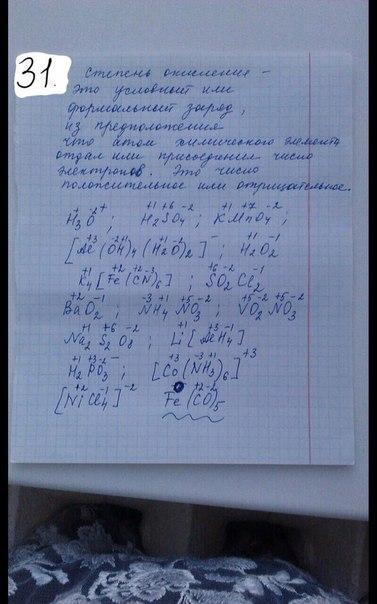 31.
Степень окисления –
это условный или
формальный заряд,
из предположения
что атом химического элемента
отдал или присоединил число
электронов. Это число
положительное или отрицательное.
H₃O⁺ ; H₂⁺¹S⁺⁶O₄⁻² ; K⁺¹Mn⁺⁷O₄⁻² ;
[Al⁺³(O⁻²H⁺¹)₄(H₂O)₂]⁻ H₂⁺¹O₂⁻¹
K₄⁺¹[Fe⁺²(C⁺²N⁻³)₆] ; S⁺⁶O₂⁻²Cl₂⁻¹
Ba⁺²O₂⁻¹ ; N⁻³H₄⁺¹N⁺⁵O₃⁻² ; V⁺⁵O₂⁻²N⁺⁵O₃⁻²
Na₂⁺¹S₂⁺⁶O₈⁻² ; Li⁺¹[Al⁺³H₄⁻¹]
H₂⁺¹P⁺³O₃⁻²⁻ ; [Co⁺³(N⁻³H₃⁺¹)₆]⁺³
[Ni⁺²Cl₄⁻¹]⁻² Fe⁰(C⁺²O⁻²)₅